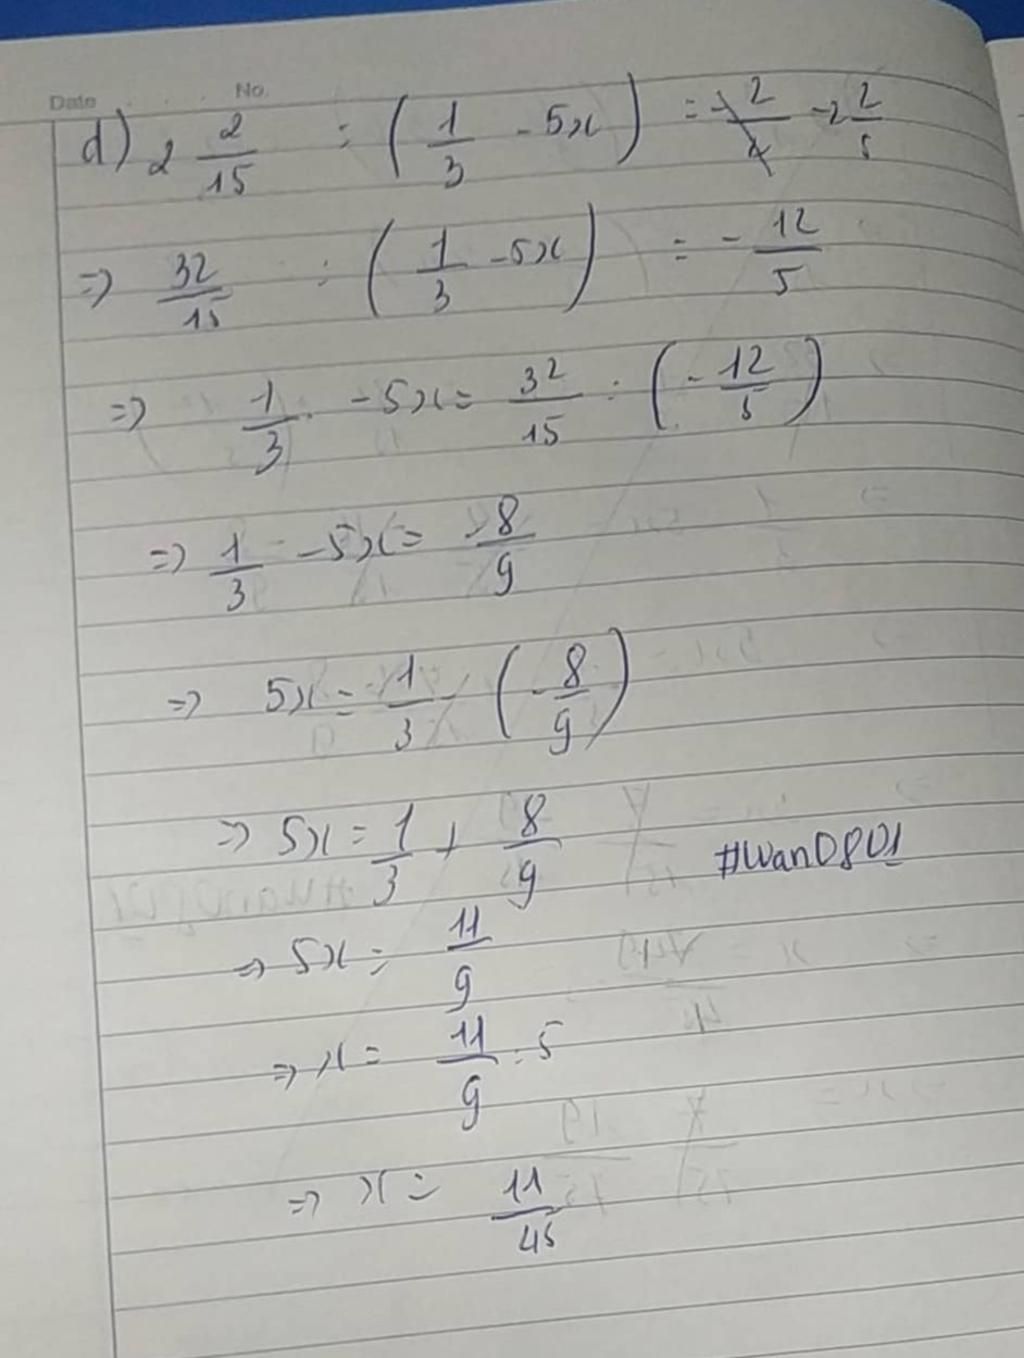 Date No.
d) 2 2/15 : (1/3 - 5x) = -2 2/5
=> 32/15 : (1/3 - 5x) = - 12/5
=> 1/3 - 5x = 32/15 : (- 12/5)
=> 1/3 - 5x = -8/9
=> 5x = 1/3 - (- 8/9)
=> 5x = 1/3 + 8/9
#Wan0801
=> 5x = 11/9
=> x = 11/9 : 5
=> x = 11/45